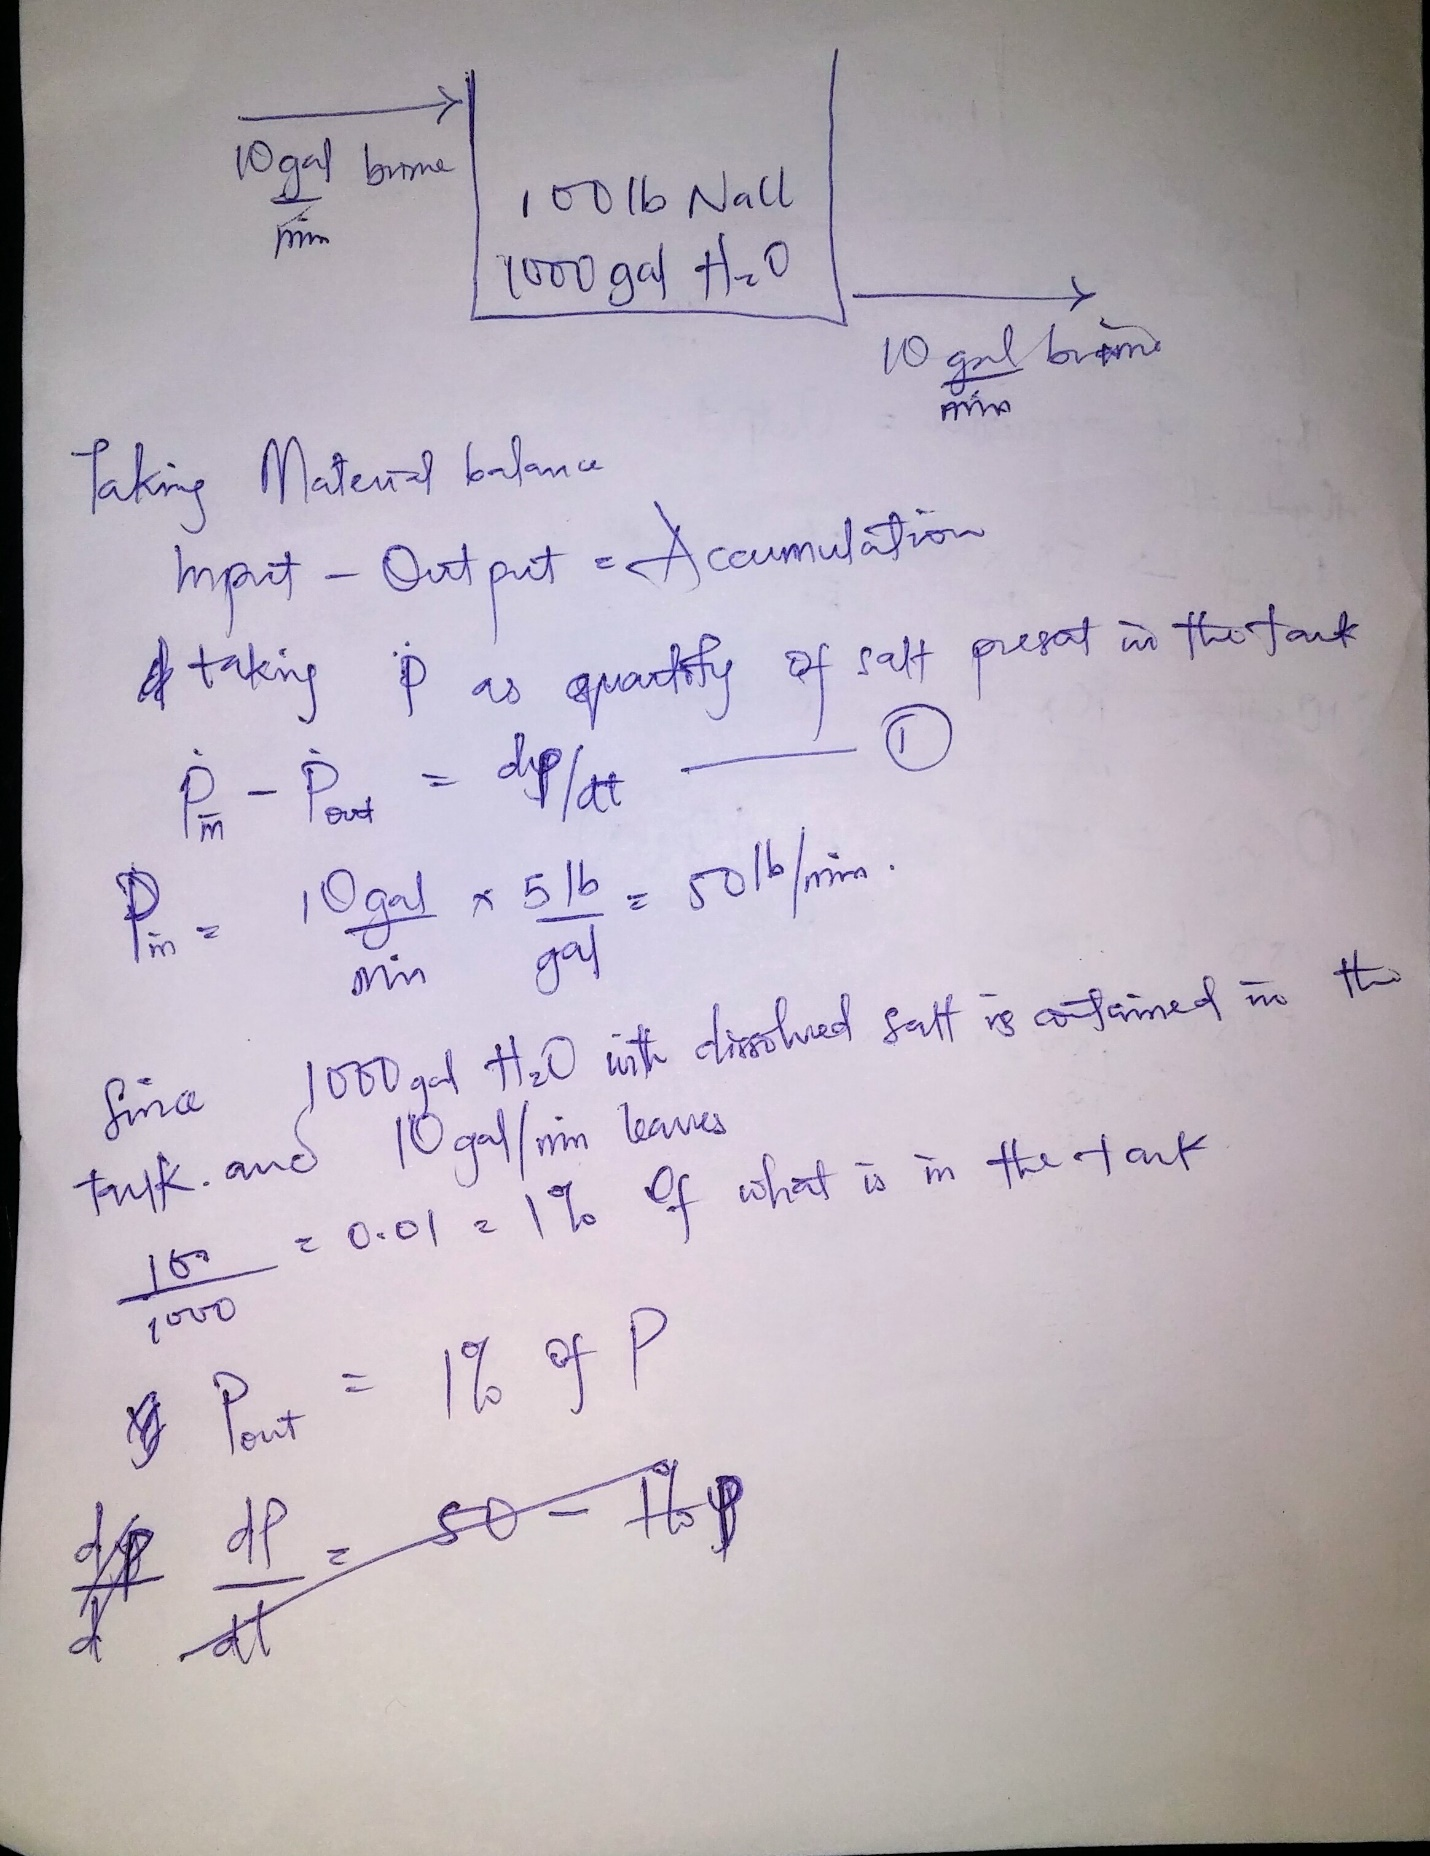 10 gal brine
min
100 lb NaCl
1000 gal H₂O
10 gal brine
min
Taking Material balance
Input - Output = Accumulation
taking ṗ as quantity of salt present in the tank
Ṗin - Ṗout = dp/dt —— ①
Pin = 10 gal/min × 5 lb/gal = 50 lb/min.
Since 1000 gal H₂O with dissolved salt is contained in the
tank. and 10 gal/min leaves
100/1000 = 0.01 = 1% of what is in the tank
Pout = 1% of P
dP/dt = 50 - 1% P